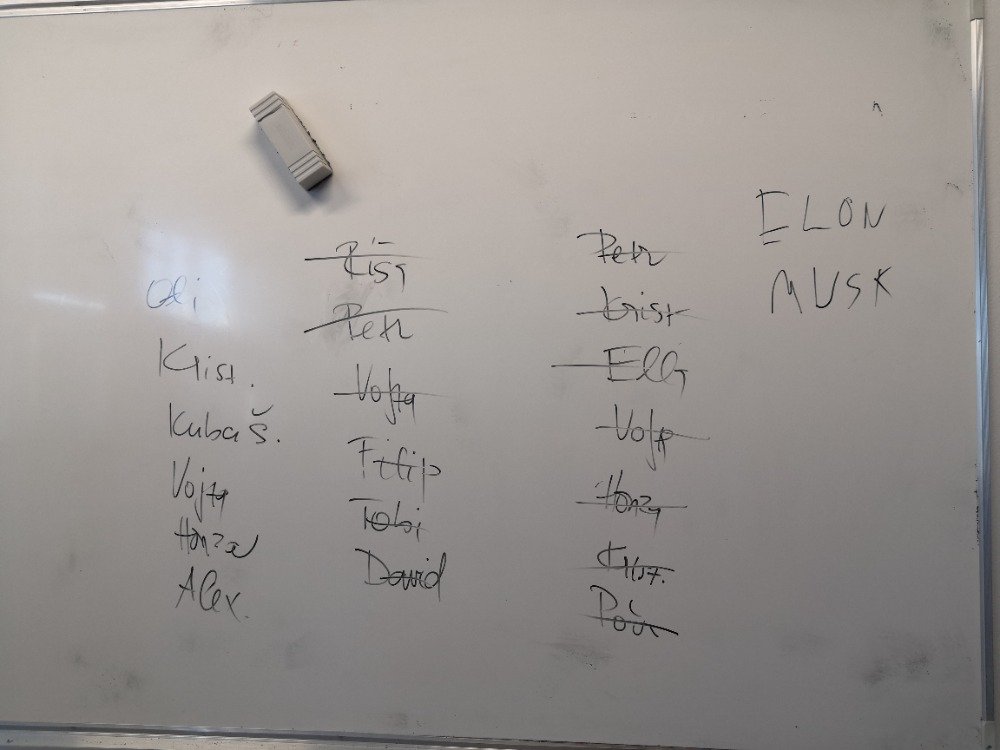 Oli
Krist.
Kuba Š.
Vojta
Honza
Alex.
Petr
Vojta
Filip
Tobi
David
Petr
Krist
Elli
Vojt
Honza
Krist.
ELON
MUSK